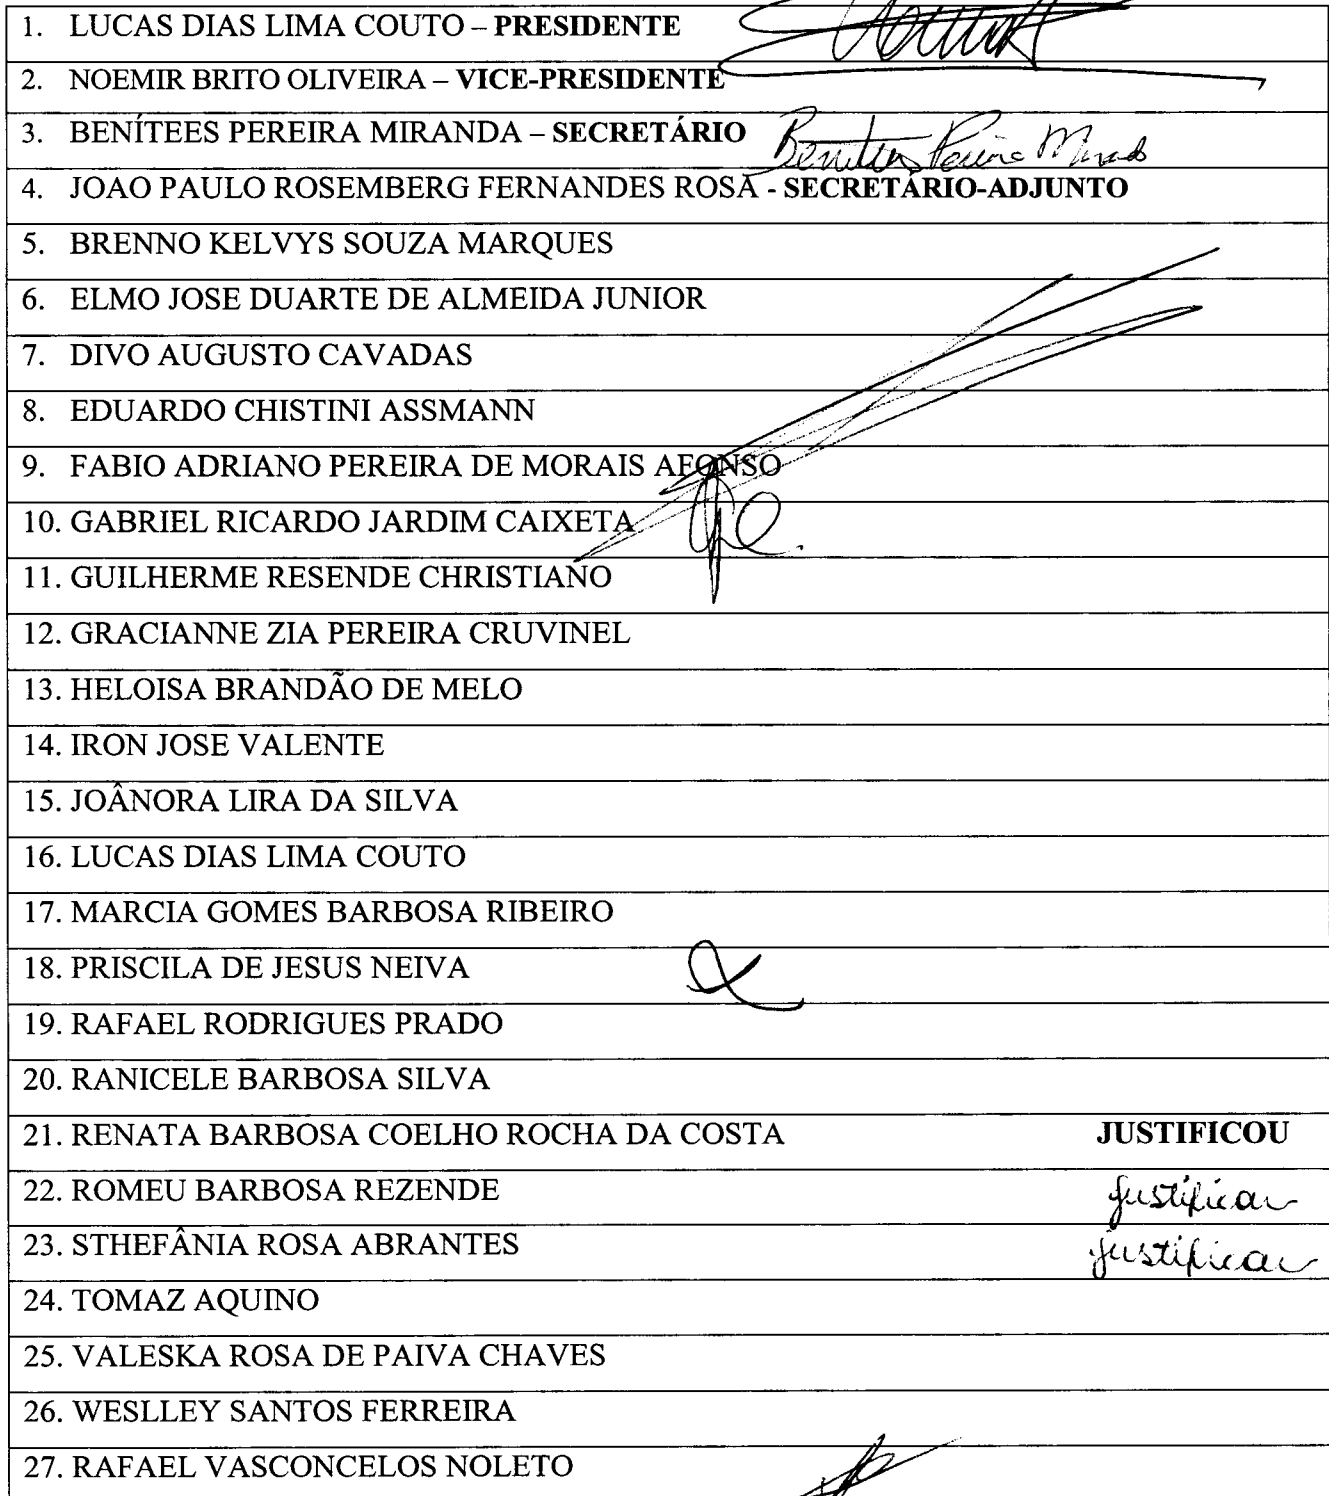 1. LUCAS DIAS LIMA COUTO – PRESIDENTE
2. NOEMIR BRITO OLIVEIRA – VICE-PRESIDENTE
3. BENÍTEES PEREIRA MIRANDA – SECRETÁRIO
4. JOAO PAULO ROSEMBERG FERNANDES ROSA - SECRETÁRIO-ADJUNTO
5. BRENNO KELVYS SOUZA MARQUES
6. ELMO JOSE DUARTE DE ALMEIDA JUNIOR
7. DIVO AUGUSTO CAVADAS
8. EDUARDO CHISTINI ASSMANN
9. FABIO ADRIANO PEREIRA DE MORAIS AFONSO
10. GABRIEL RICARDO JARDIM CAIXETA
11. GUILHERME RESENDE CHRISTIANO
12. GRACIANNE ZIA PEREIRA CRUVINEL
13. HELOISA BRANDÃO DE MELO
14. IRON JOSE VALENTE
15. JOÂNORA LIRA DA SILVA
16. LUCAS DIAS LIMA COUTO
17. MARCIA GOMES BARBOSA RIBEIRO
18. PRISCILA DE JESUS NEIVA
19. RAFAEL RODRIGUES PRADO
20. RANICELE BARBOSA SILVA
21. RENATA BARBOSA COELHO ROCHA DA COSTA JUSTIFICOU
22. ROMEU BARBOSA REZENDE justificar
23. STHEFÂNIA ROSA ABRANTES justificar
24. TOMAZ AQUINO
25. VALESKA ROSA DE PAIVA CHAVES
26. WESLLEY SANTOS FERREIRA
27. RAFAEL VASCONCELOS NOLETO